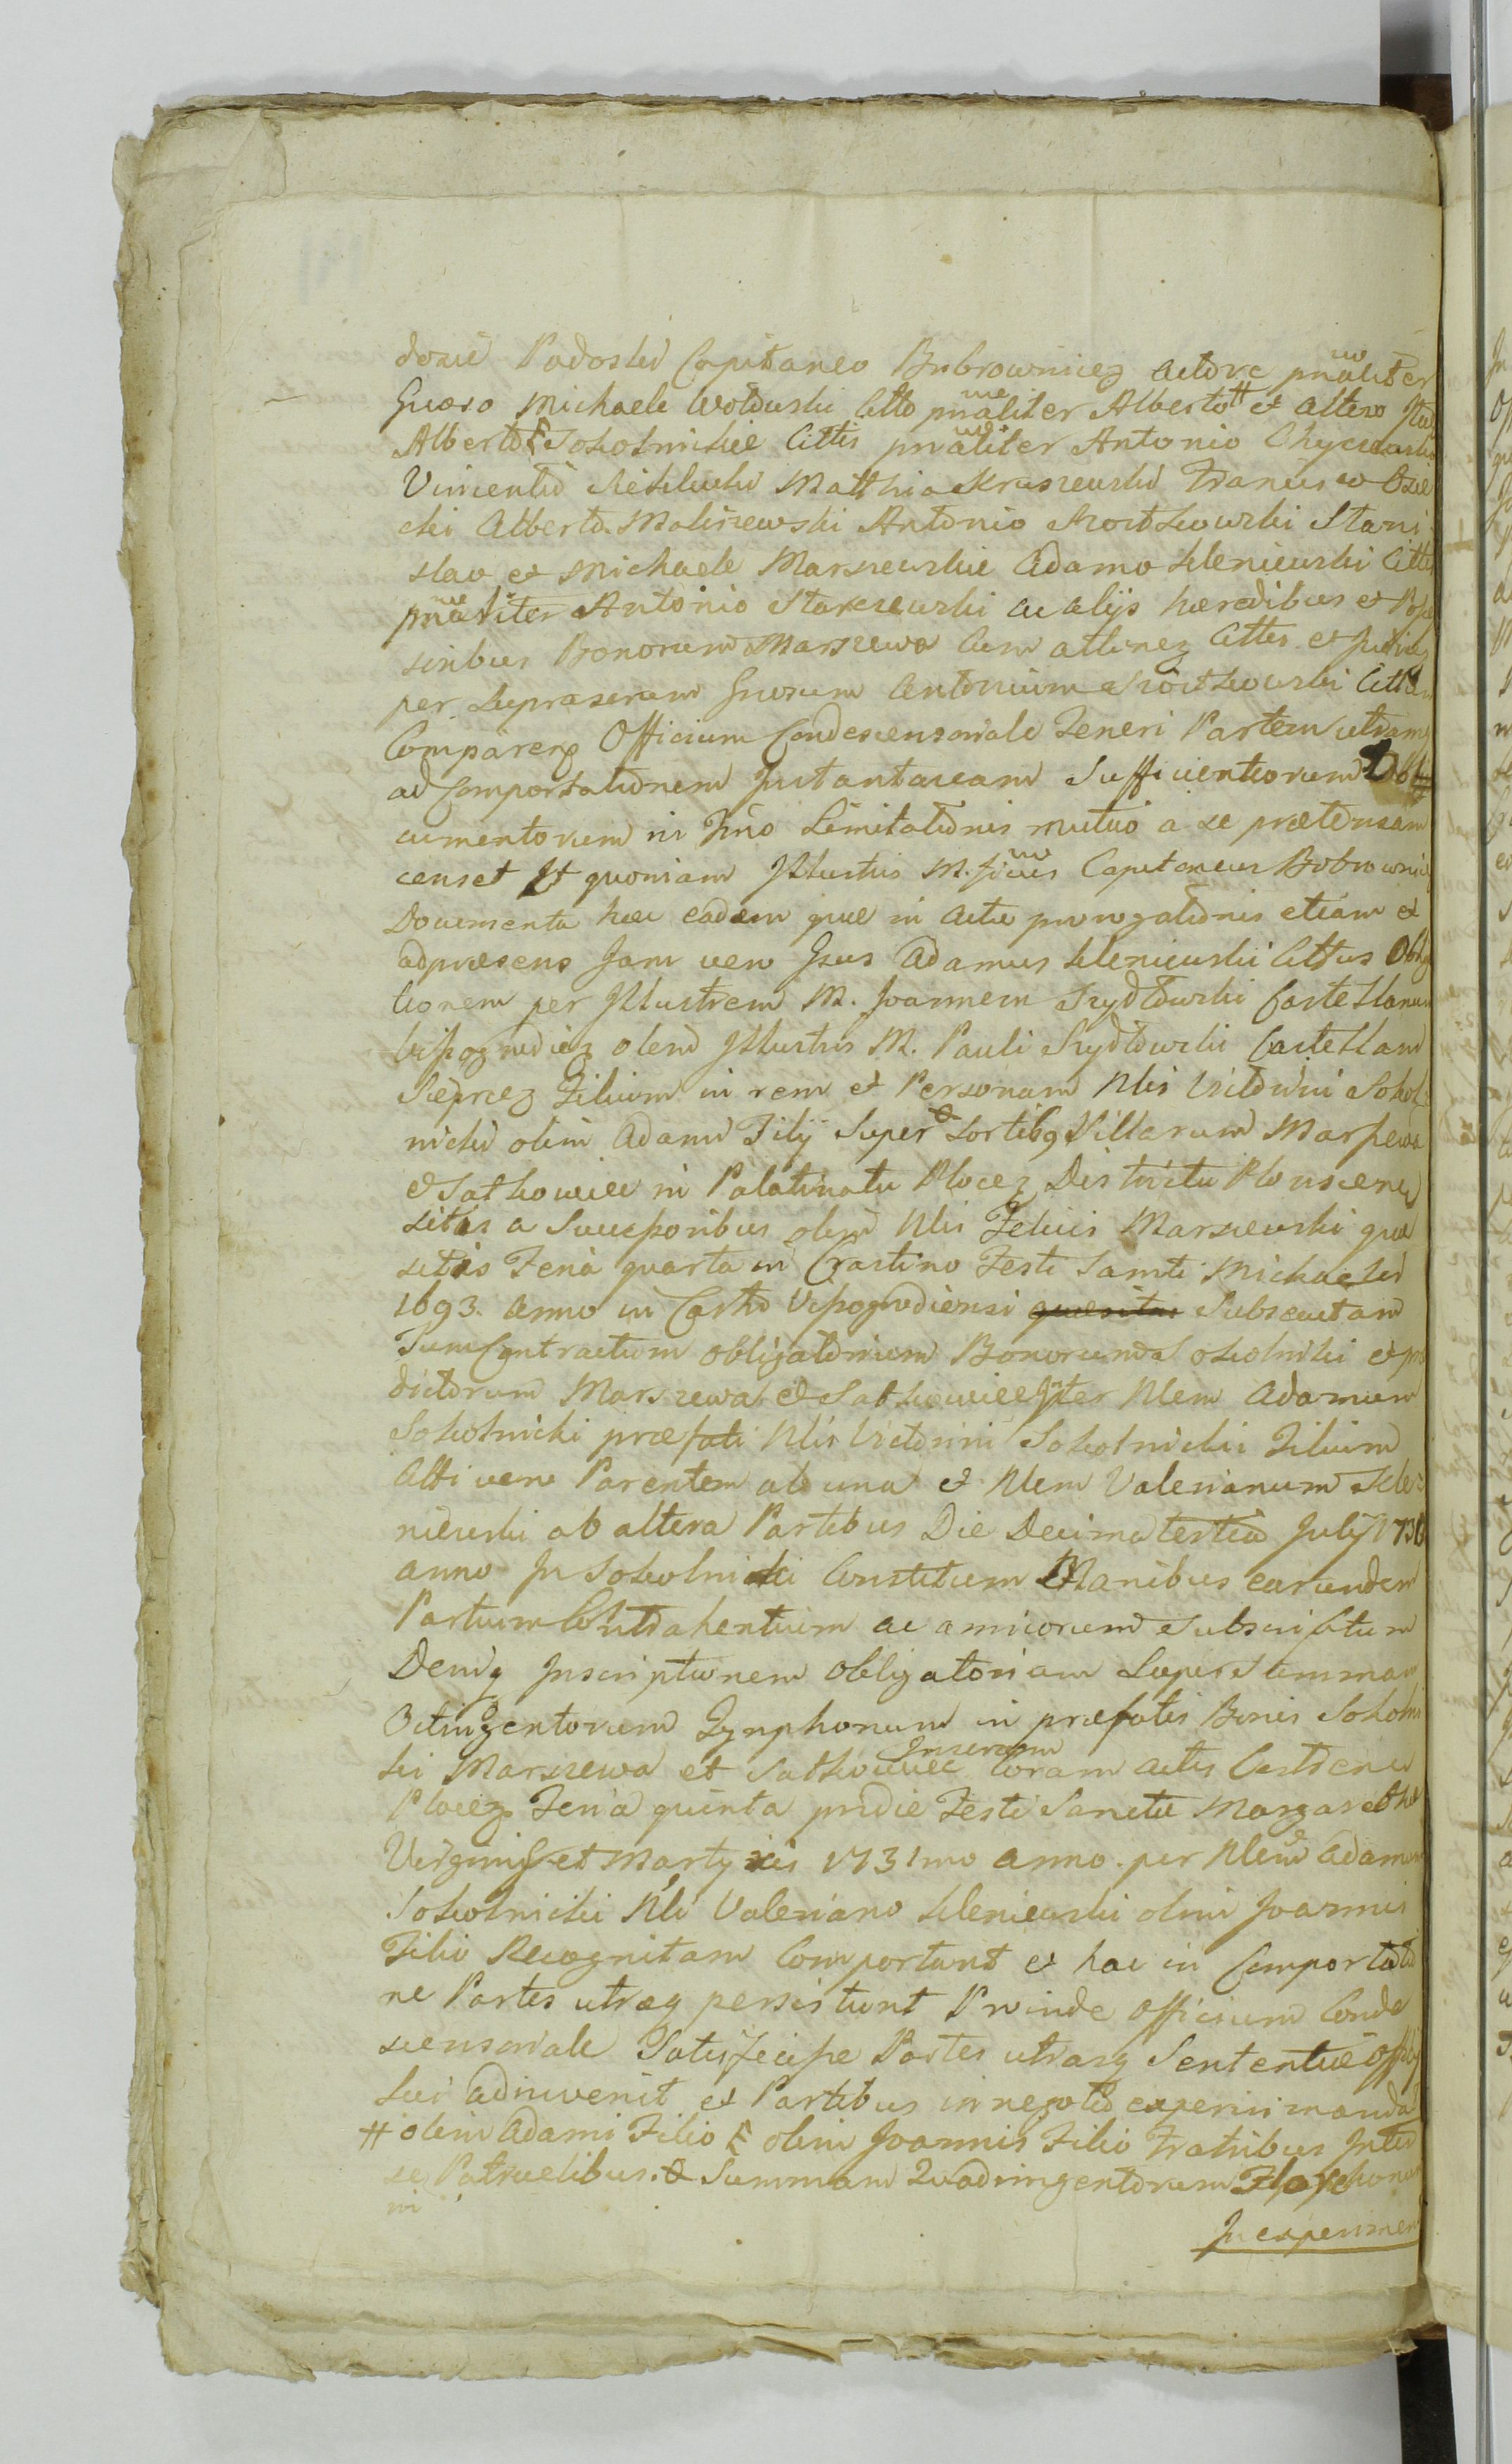 dosii Podoski Capitaneo Bobrownicz actore pnaliter
Gnoso Michaele Woduski Citto pnaliter Alberto # et altero
Alberto Sokolnickie Cittis pnaliter Antonio
Vincentio Matthia Kraszewski Francisco
cki Alberto Maliszewski Antonio Stani
slao et Michaele Marszewskie Adamo Sleniewski Cittis
pnaliter Antonio Starczewski ac alijs haeredibus et Posse
soribus Bonorum Marszewo cum attinez Cittis et
per Gnosum Antonium Cittum
Comparens Officium Condescensoriale Teneri Partem utramq
ad Comportationem Instantaneam Sufficientiorum Do
cumentorum in Tno Limitationis mutuo a se praetensam
censet Et quoniam Illustris M. ficus Capitaneus Bobrownic
Documenta haec eadem quae in actu prorogationis etiam et
adpraesens Jam vero Gsus Adamus Sleniewski Cittus Obliga
tionem per Illustrem M. Joannem Szydlowski Castellanum
olim Illustris M. Pauli Szydlowski Castellani
Sieprcz Filium in rem et Personam Nlis Victorini Sokol
nicki olim Adami Filij Super sortibq Villarum Marszewa
et Satkowice in Palatinatu Plocz Districtu Plonscensi
sitis a Successoribus olim Nlis Felicis Marszewski quae
sitis Feria quarta in Crastino Festi Sancti Michaelis
1693. Anno in Castro Vissogrodiensi quaesitae Subsecutam
Tum Contractum obligatorium Bonorum Sokolniki et prae
dictorum Marszewa et Satkowice Inter Nlem Adamum
Sokolnicki praefati Nlis Victorini Sokolnicki Filium
Atti vero Parentem ab una et Nlem Valerianum Sle
niewski ab altera Partibus Die Decima tertia July 173
anno In Sokolnicki Constitum Manibus earundem
Partium Contrahentium ac amicorum Subscriptum
Deniq Inscriptionem obligatoriam Super Summam
Octingentorum Tynphonum in praefatis Bonis Sokolni
ki Marszewa et Satkowice Inserem Coram actis Castrens
Plocz Feria quinta pridie Festi Sanctae Margarethae
Virginis et Martyris 1731mo anno per Nlem Adamum
Sokolnicki Nli Valeriano Sleniewski olim Joannis
Filio Recognitam Comportant et hac in Comportatio
ne Partes utraeq persistunt Proinde Officium Conde
scensoriale Satisfecisse Partes utrasq Sententiae Officij
sui adinvenit et Partibus in negotio experiri mandat
# olim Adami Filio olim Joannis Filio Fratribus Inter
se Patruelibus. & Summam Quadringentorum
ni
In experimen